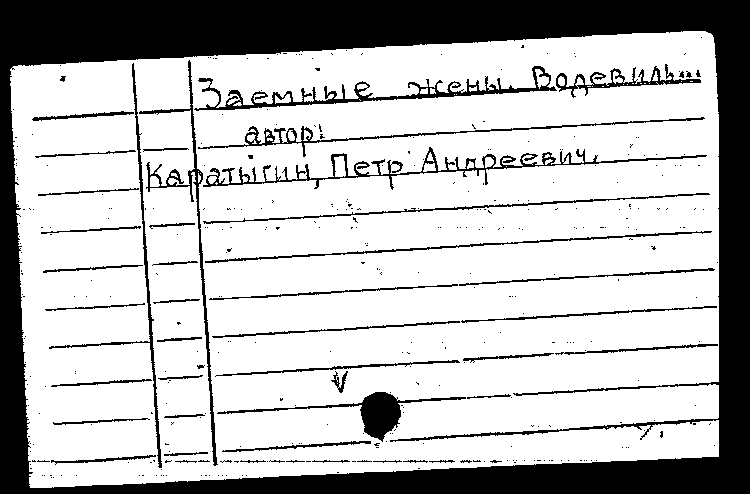 Заемные жены. Водевиль...
автор:
Каратыгин, Петр Андреевич.